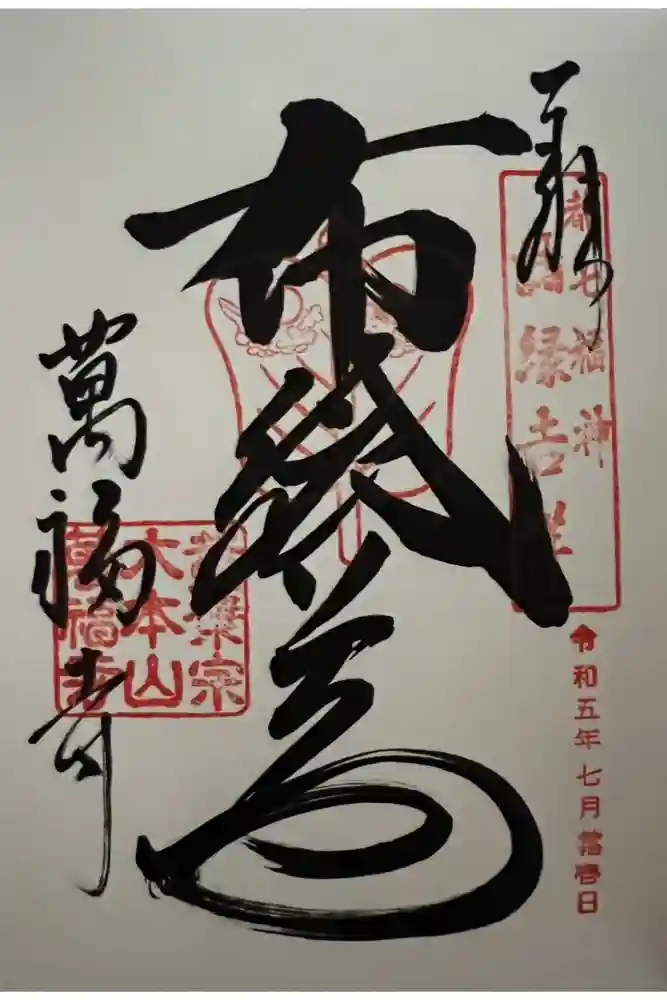 奉拝
都七福神
諸縁吉祥
令和五年七月拾壱日
布袋尊
黄檗宗
大本山
萬福寺
萬福寺